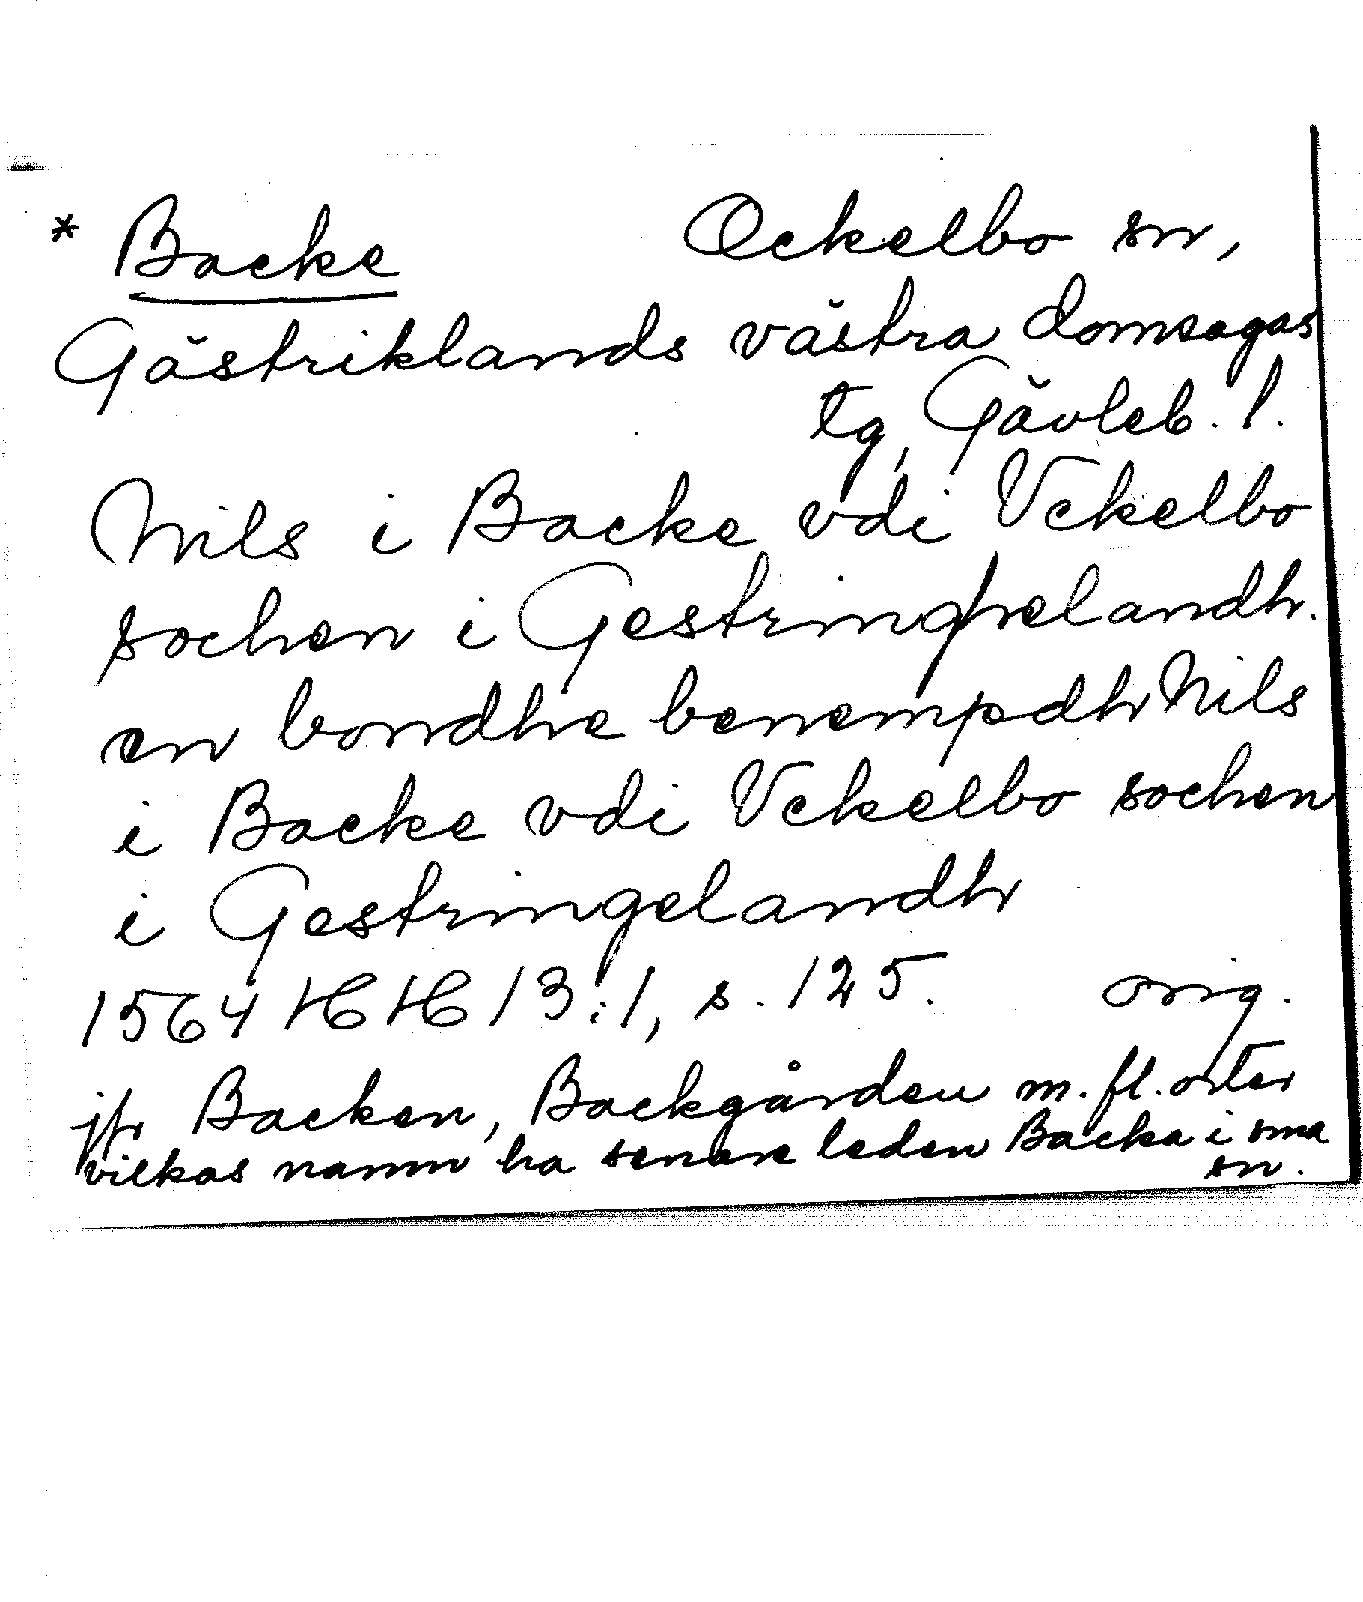 * Backe Ockelbo sn,
Gästriklands västra domsagas
tg, Gävleb. l.
Nils i Backe vdi Vckelbo
sochen i Gestringelandh.
en bondhe benempdh Nils
i Backe vdi Vckelbo sochen
i Gestringelandh
1564 HH 13:1, s. 125. orig.
jfr Backen, Backgården m. fl. orter
vilkas namn ha senare leden Backa i sma
sn.